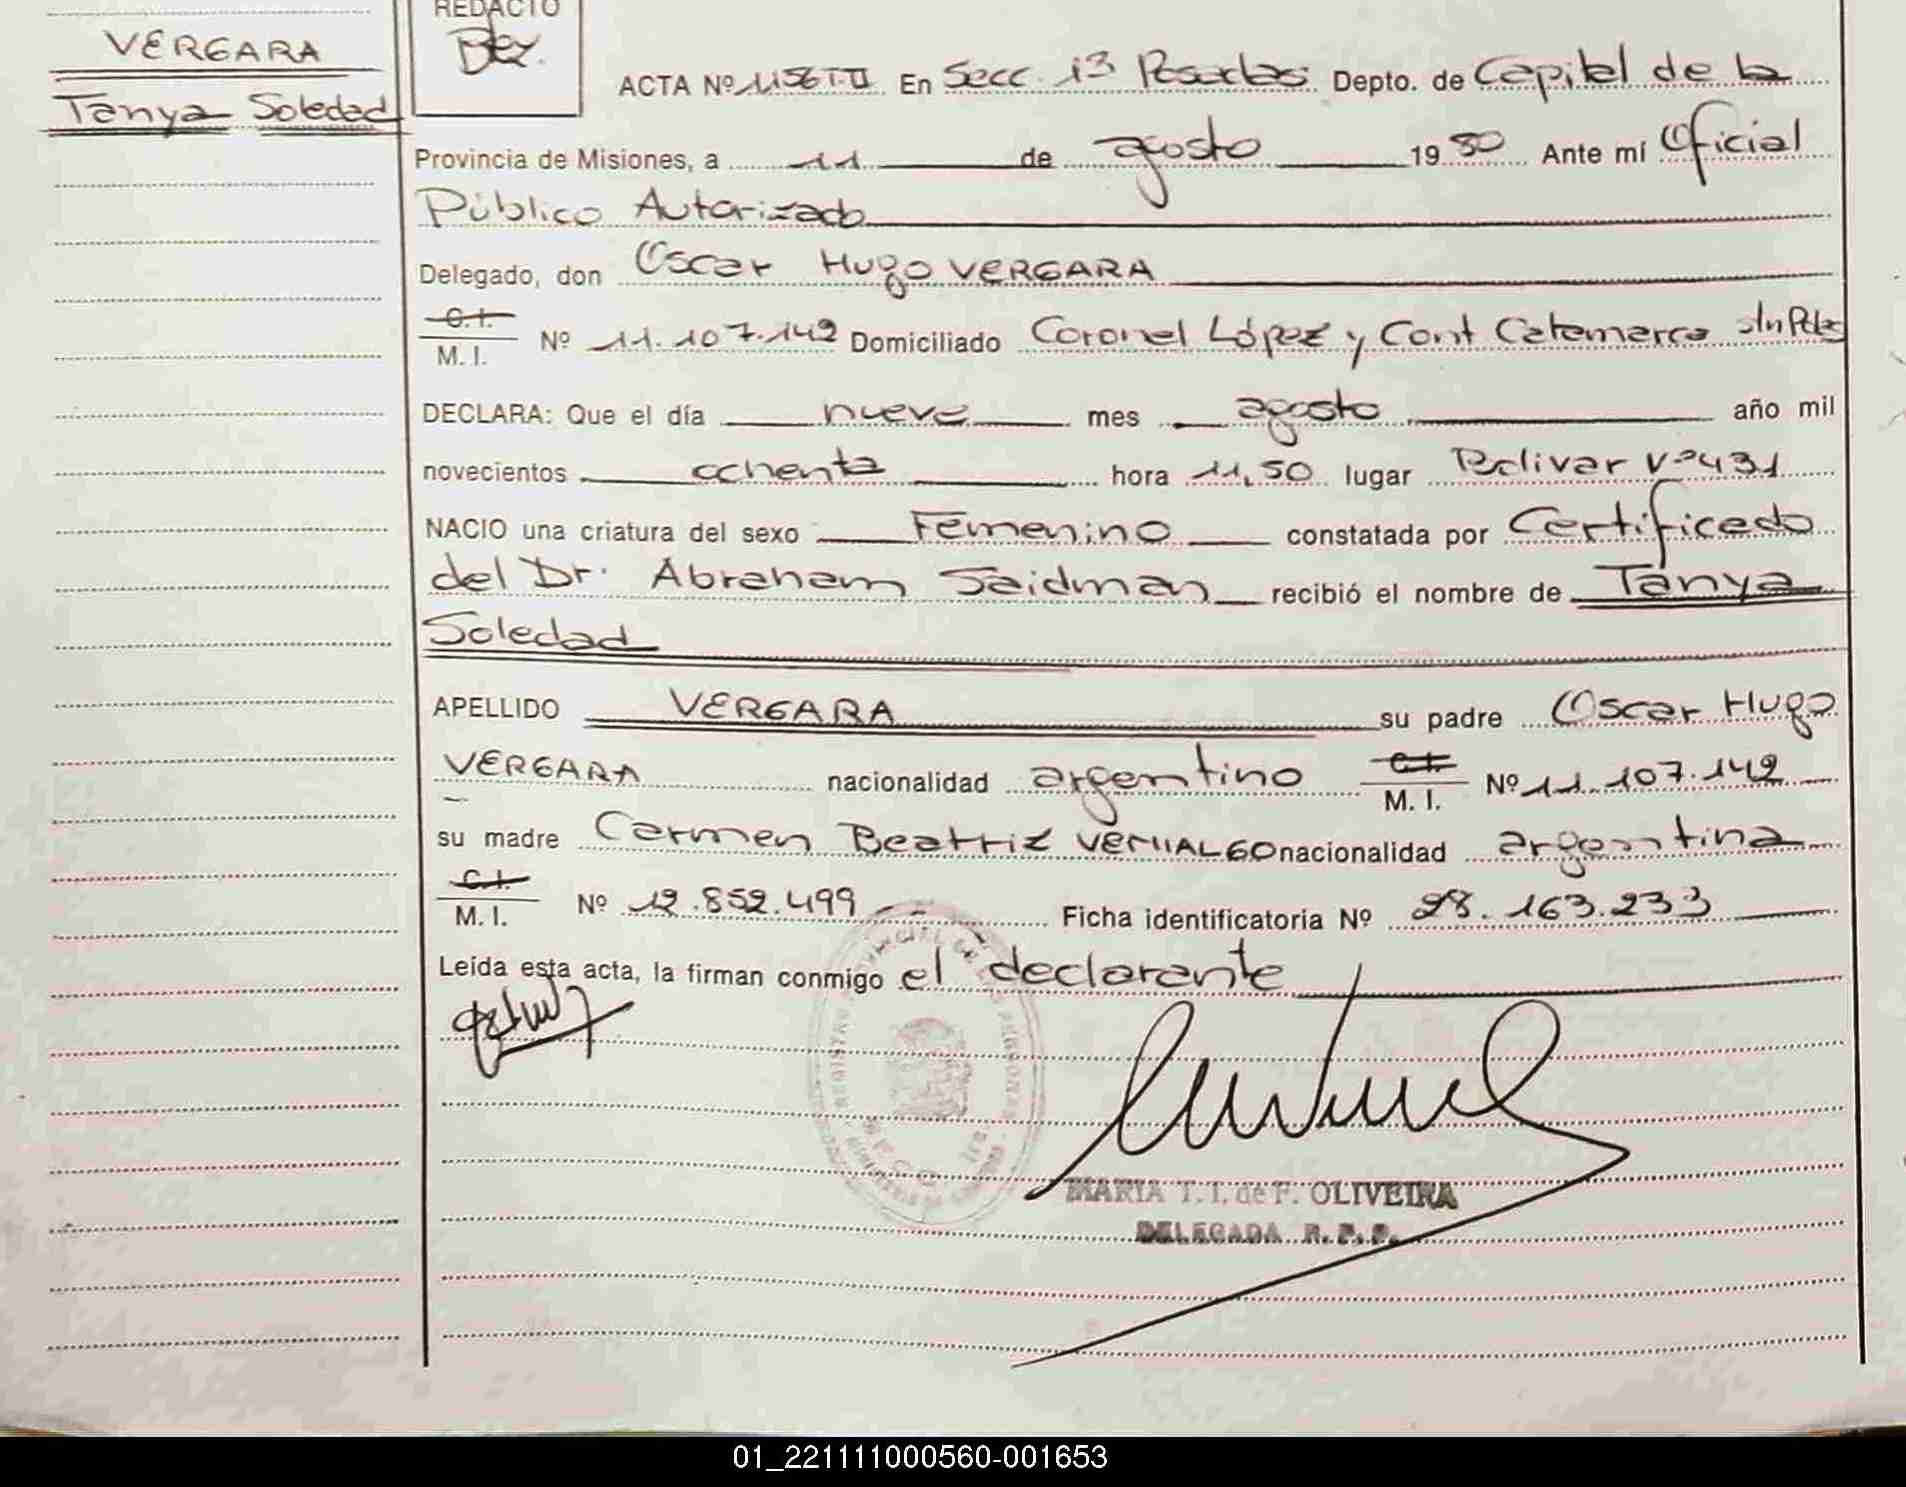 REDACTO
VERGARA
Tanya Soledad
ACTA Nº 1156 T II En Secc. 1ª Posadas Depto. de Capital de la
Provincia de Misiones, a 11 de agosto 1980 Ante mí Oficial
Público Autorizado
Delegado, don Oscar Hugo VERGARA
C.I.
M. I. Nº 11.107.142 Domiciliado Coronel López y Cont Catamarca s/n Pdas
DECLARA: Que el día nueve mes agosto año mil
novecientos ochenta hora 11,50 lugar Bolivar Nº 431
NACIO una criatura del sexo Femenino constatada por Certificado
del Dr. Abraham Saidman recibió el nombre de Tanya
Soledad
APELLIDO VERGARA su padre Oscar Hugo
VERGARA nacionalidad argentino C.I.
M. I. Nº 11.107.142
su madre Carmen Beatriz VERIALGO nacionalidad argentina
C.I.
M. I. Nº 12.852.499 Ficha identificatoria Nº 28.163.233
Leída esta acta, la firman conmigo el declarante
MARIA T. I. de F. OLIVEIRA
DELEGADA R. P. P.
01_221111000560-001653